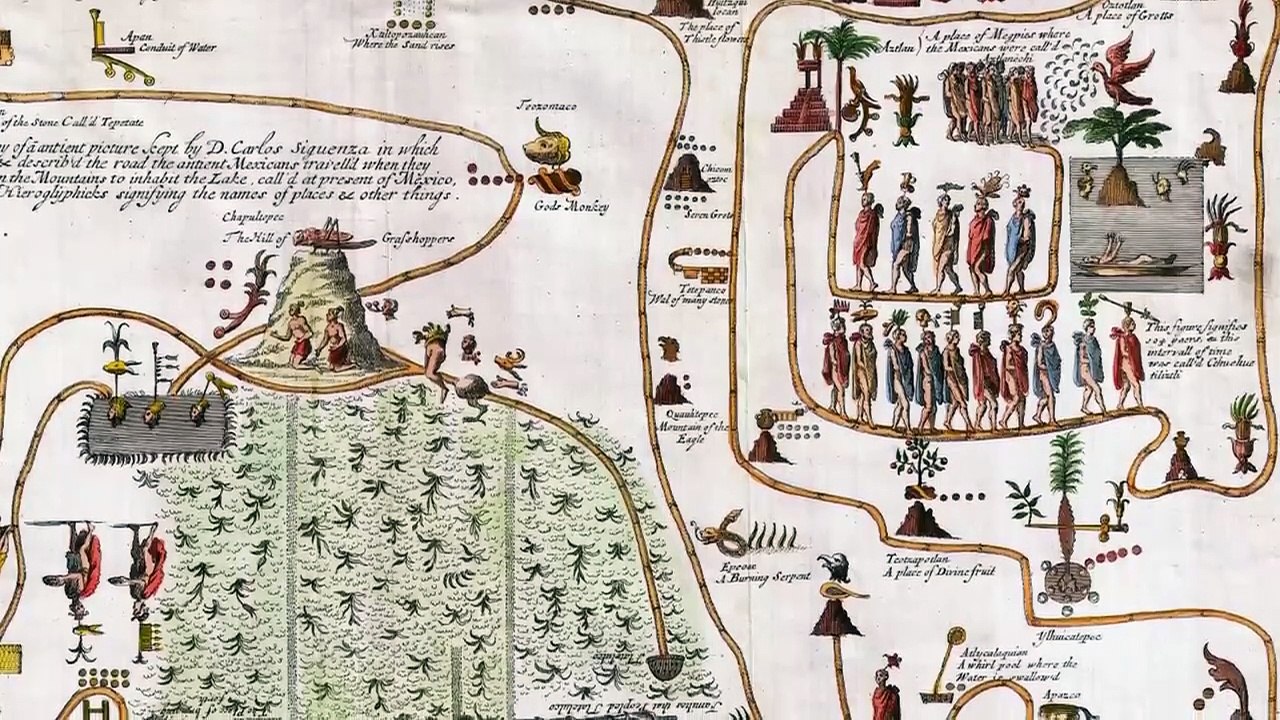 Apan
Conduit of Water
Xaltepozauhcan
Where the Sand rises
locan
The place of
Thistle flower
Oztotlan
A place of Grotts
Aztlan
A place of Megpies where
the Mexicans were call'd
Aztlanechi
of the Stone Call'd Tepetate
Teozomaco
Gods Monkey
y of á antient picture kept by D. Carlos Siguenza in which
describ'd the road the antient Mexicans travell'd when they
the Mountains to inhabit the Lake, call'd at present of Mexico,
Hieroglyphicks signifying the names of places & other things.
Chapultepec
The Hill of
Grasshoppers
Chicom
oztoc
Seven Grots
Tetepanco
Wal of many stones
Quauhtepec
Mountain of the
Eagle
This figure signifies
104 years, as this
intervall of time
was call'd Cihuehue
tiliztli
Epcoac
A Burning Serpent
Teotzapotlan
A place of Divine fruit
Ylhuicatepec
Atlycalaquian
A whirl pool where the
Water is swallow'd
Apazco
Families that Peopled Tlatelulco